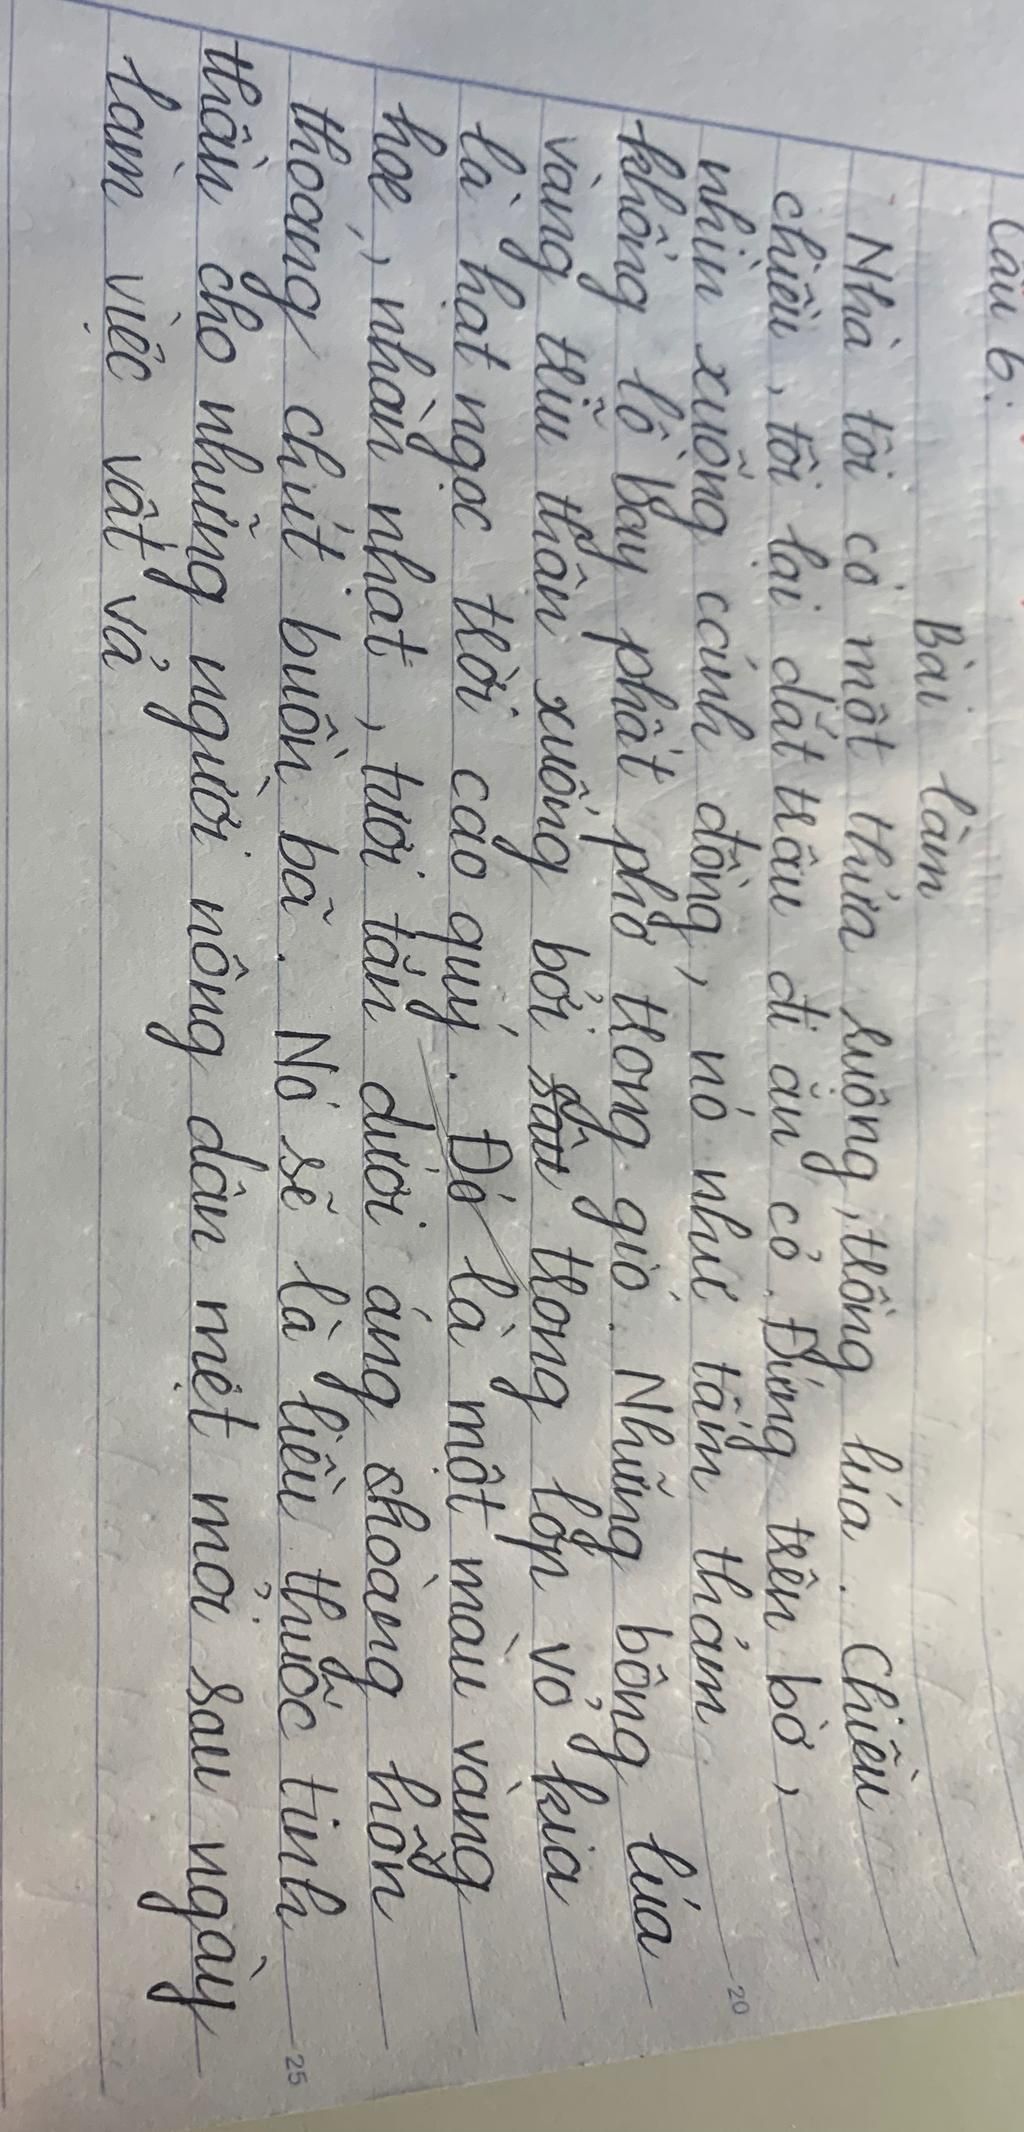 Câu 6:
Bài làm
Nhà tôi có một thửa ruộng, trồng lúa. Chiều
chiều, tôi lại dắt trâu đi ăn cỏ. Đứng trên bờ,
nhìn xuống cánh đồng, nó như tấm thảm
khổng lồ bay phất phơ trong gió. Những bông lúa
vàng trĩu thân xuống bởi sâu trong lớp vỏ kia
là hạt ngọc trời cao quý. Đó là một màu vàng
hoe, nhàn nhạt, tươi tắn dưới áng shoàng hôn
thoáng chút buồn bã. Nó sẽ là liều thuốc tinh
thần cho những người nông dân mệt mỏi sau ngày
làm việc vất vả
20
25